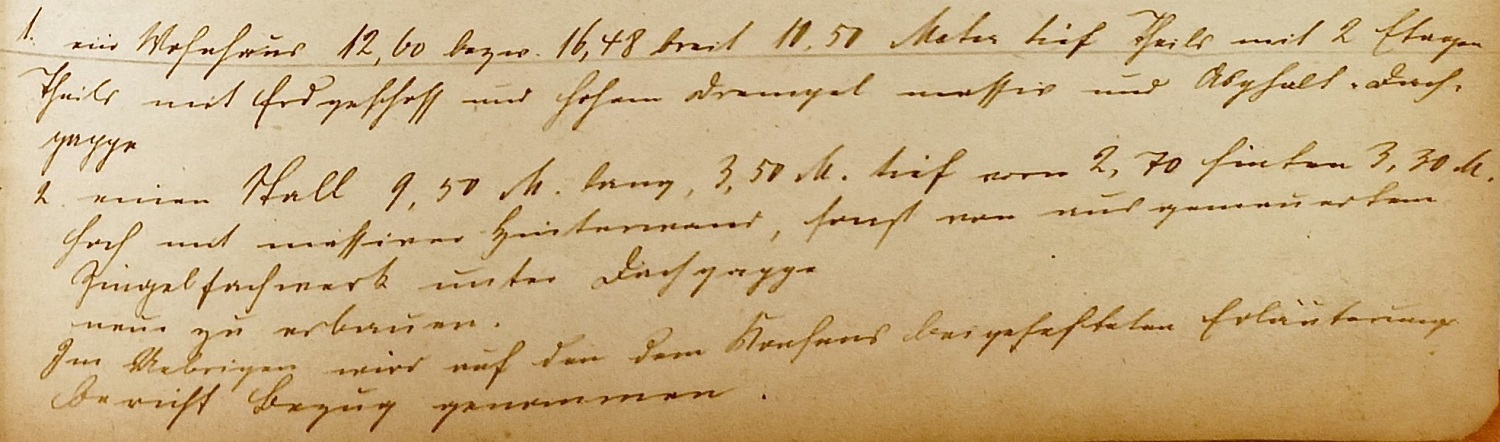 1. ein Wohnhaus 12,60 bezw. 16,48 breit 10,50 Meter tief Theils mit 2 Etagen
Theils mit Erdgeschoß und hohem Drempel massiv und Asphalt-Dach-
pappe
2. einen Stall 9,50 M. lang, 3,50 M. tief vorn 2,70 hinten 3,30 M.
hoch mit massiver Hinterwand, sonst von ausgemauertem
Ziegelfachwerk unter Dachpappe
neu zu erbauen.
Im Uebrigen wird auf den dem Konsens beigehefteten Erläuterungs
bericht Bezug genommen.